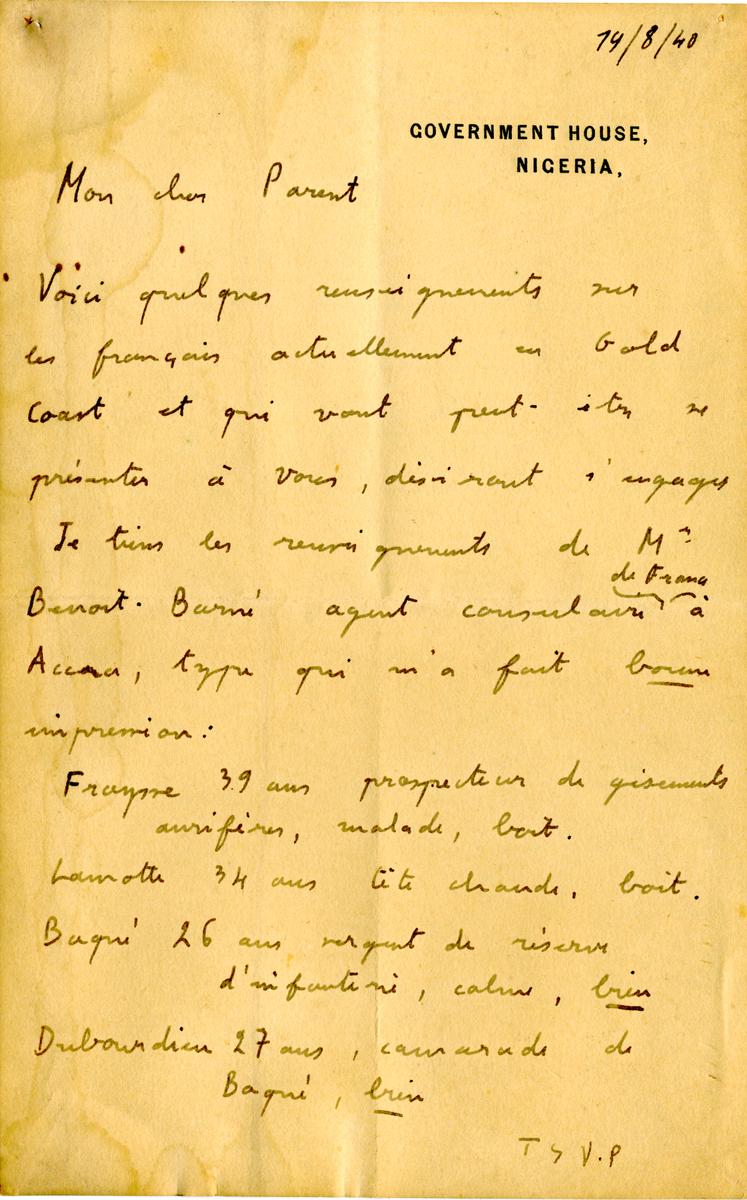 14/8/40
GOVERNMENT HOUSE,
NIGERIA,
Mon cher Parent
Voici quelques renseignements sur
les français actuellement en Gold
Coast et qui vont peut-être se
présenter à vous, désirant s'engager
Je tiens les renseignements de Mr
Benoit-Barné agent consulaire de France à
Accra, type qui m'a fait bonne
impression :
Fraysse 39 ans prospecteur de gisements
aurifères, malade, boit.
Lamotte 34 ans tête chaude, boit.
Baqué 26 ans sergent de réserve
d'infanterie, calme, bien
Dubourdieu 27 ans, camarade de
Baqué, bien
T S V.P